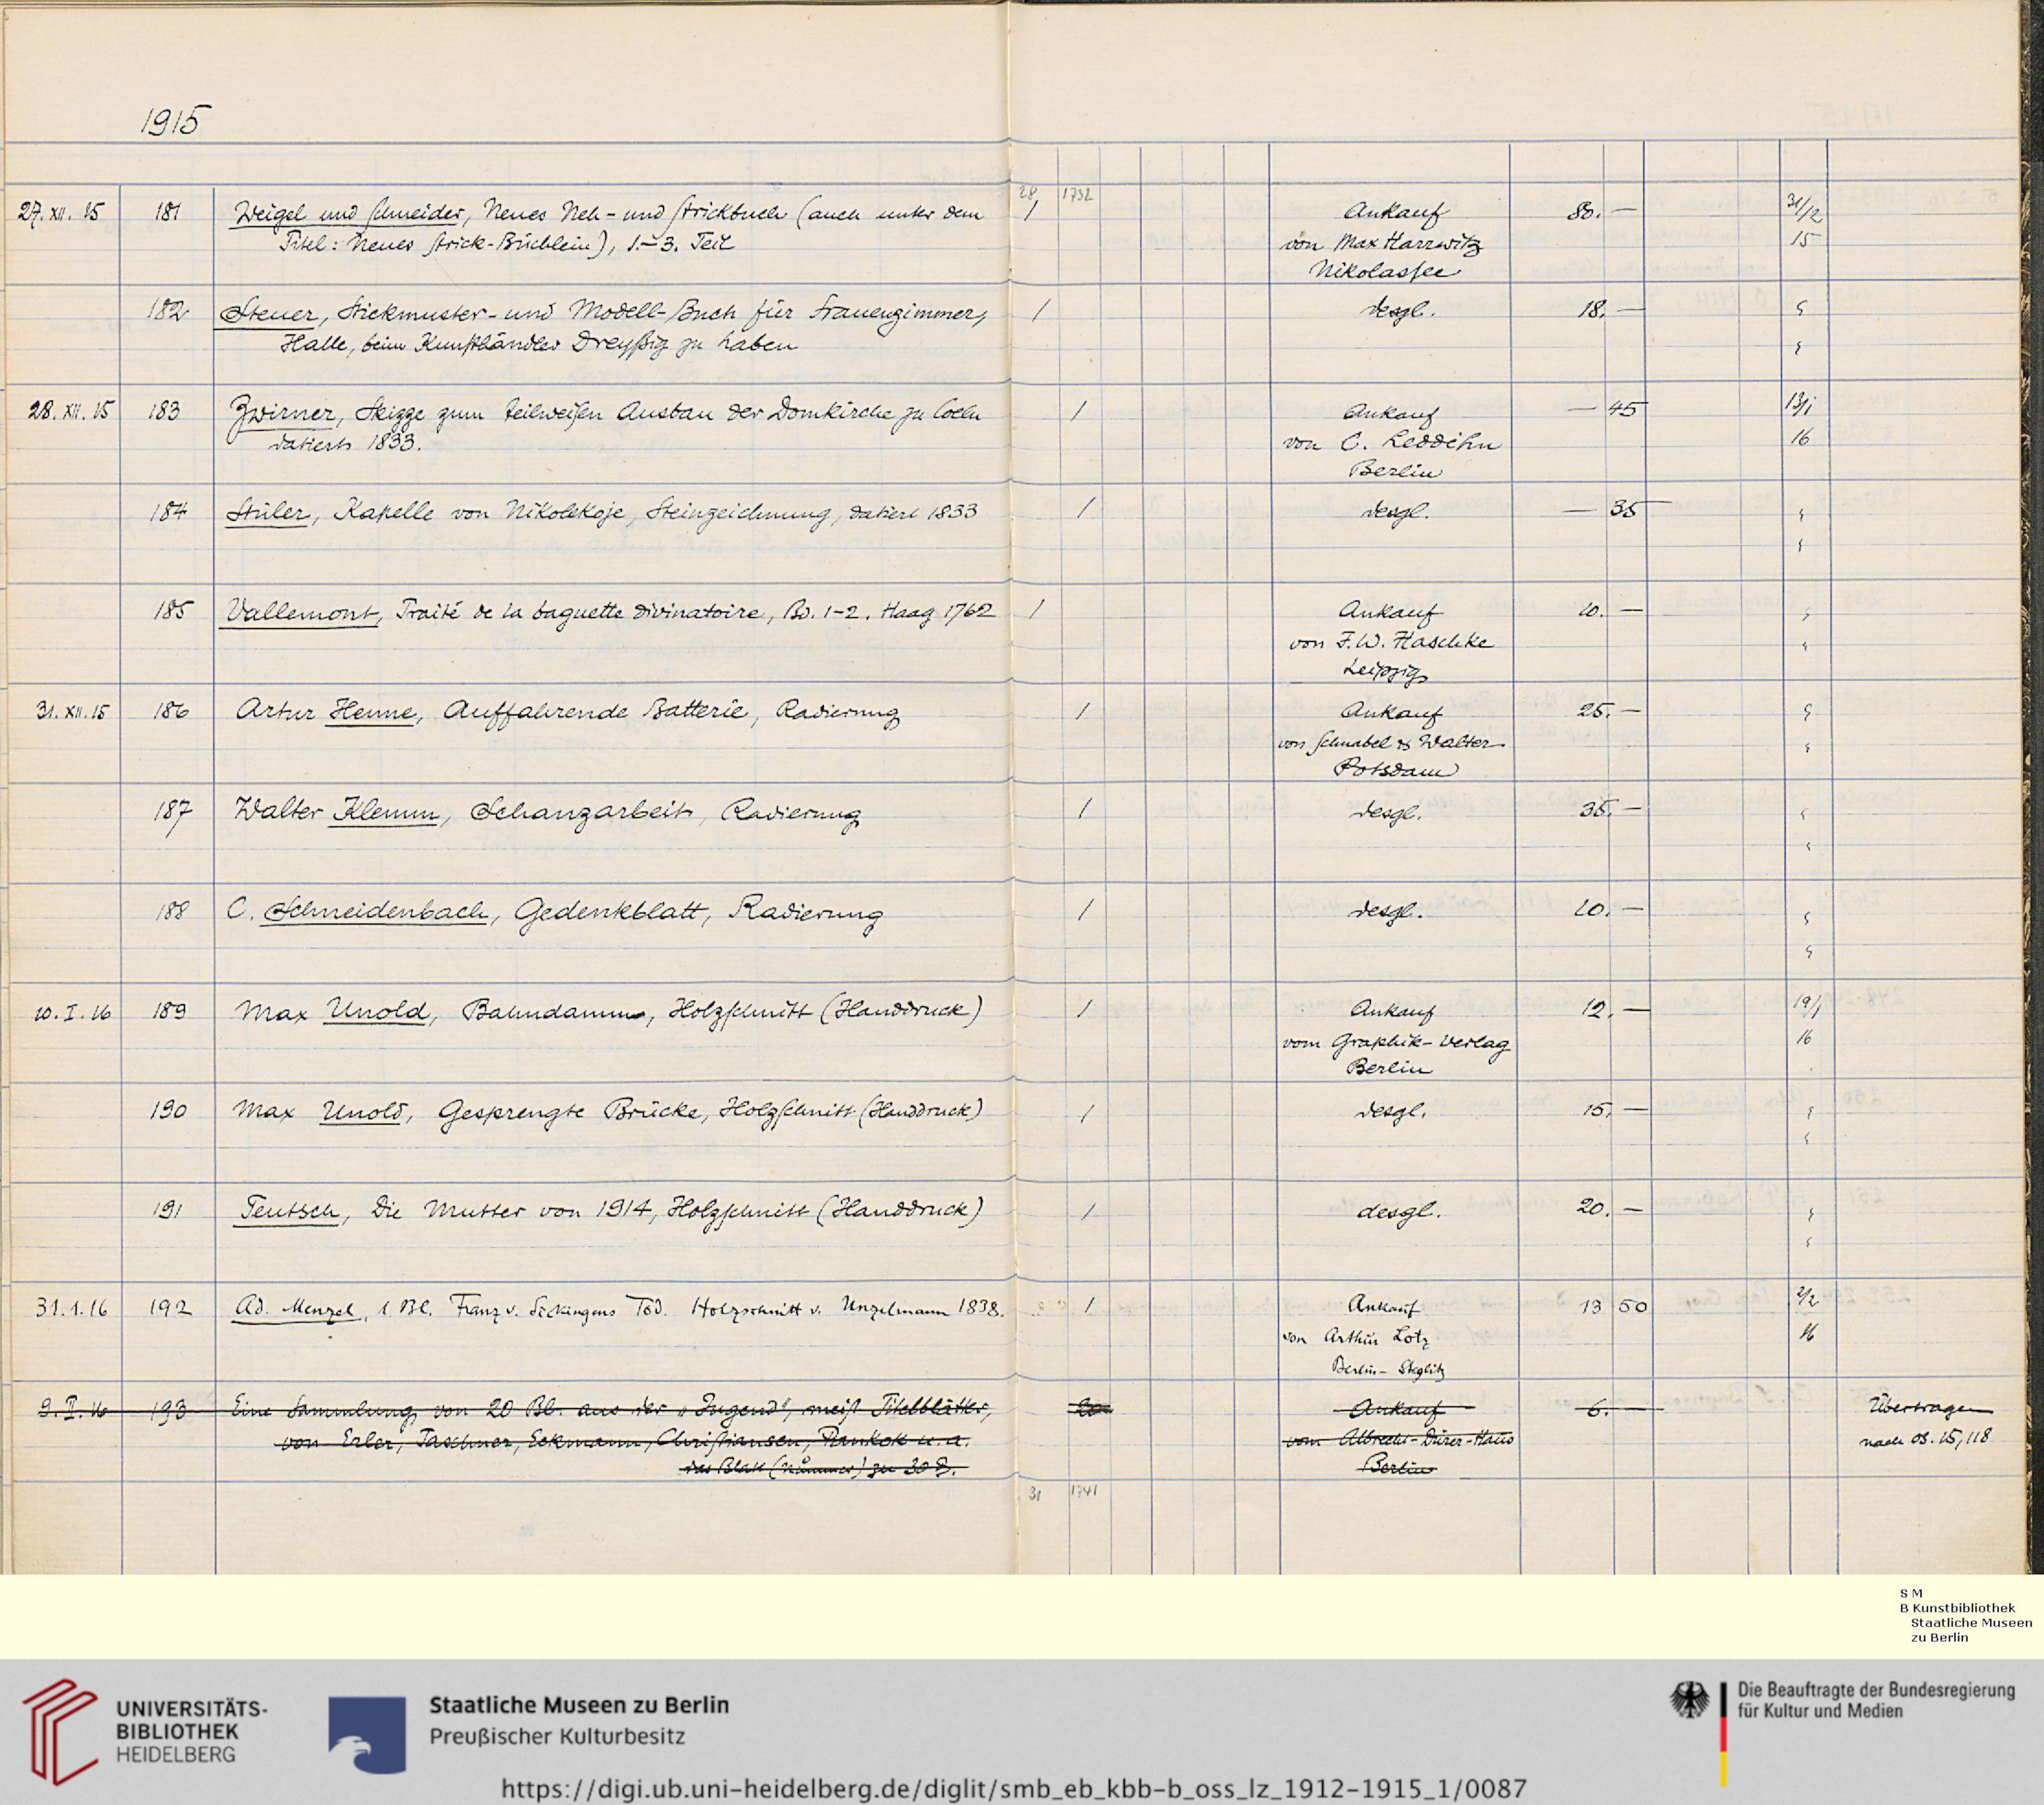 1915
28 1732
27. XII. 15 181 Weigel und Schneider, Neues Neh- und Strickbuch (auch unter dem / Ankauf 80. — 31/12
Titel: Neues Strick-Büchlein), 1.–3. Teil von Max Harrwitz 15
Nikolassee
182 Steuer, Stickmuster- und Modell-Buch für Frauenzimmer, / desgl. 18. — "
Halle, beim Kunsthändler Dreyßig zu haben "
28. XII. 15 183 Zwirner, Skizze zum teilweisen Ausbau der Domkirche zu Coeln / Ankauf — 45 13/1
datiert 1833. von C. Leddihn 16
Berlin
184 Stüler, Kapelle von Nikolskoje, Steinzeichnung, datiert 1833 / desgl. — 35 "
"
185 Vallemont, Traité de la baguette divinatoire, Bd. 1-2. Haag 1762 / Ankauf 10. — "
von F. W. Haschke "
Leipzig
31. XII. 15 186 Artur Henne, Auffahrende Batterie, Radierung / Ankauf 25. — "
von Schnabel & Walter "
Potsdam
187 Walter Klemm, Schanzarbeit, Radierung / desgl. 35. — "
"
188 C. Schneidenbach, Gedenkblatt, Radierung / desgl. 10. — "
"
10. I. 16 189 Max Unold, Bahndamm, Holzschnitt (Handdruck) / Ankauf 12. — 19/1
vom Graphik-Verlag 16
Berlin
190 Max Unold, Gesprengte Brücke, Holzschnitt (Handdruck) / desgl. 15. — "
"
191 Teutsch, Die Mutter von 1914, Holzschnitt (Handdruck) / desgl. 20. — "
"
31. 1. 16 192 Ad. Menzel, 1 Bl. Franz v. Sickingens Tod. Holzschnitt v. Unzelmann 1838. / Ankauf 13 50 2/2
von Arthur Lotz 16
Berlin-Steglitz
9. II. 16 193 Eine Sammlung von 20 Bl. aus der "Jugend", meist Titelblätter, 20 Ankauf 6. — Übertragen
von Erler, Taschner, Eckmann, Christiansen, Pankok u. a. vom Albrecht-Dürer-Haus nach OS. 15,118
das Blatt (Nummer) zu 30 Berlin
31 1741
S M
B Kunstbibliothek
Staatliche Museen
zu Berlin
UNIVERSITÄTS-
BIBLIOTHEK
HEIDELBERG
Staatliche Museen zu Berlin
Preußischer Kulturbesitz
Die Beauftragte der Bundesregierung
für Kultur und Medien
https://digi.ub.uni-heidelberg.de/diglit/smb_eb_kbb-b_oss_lz_1912-1915_1/0087